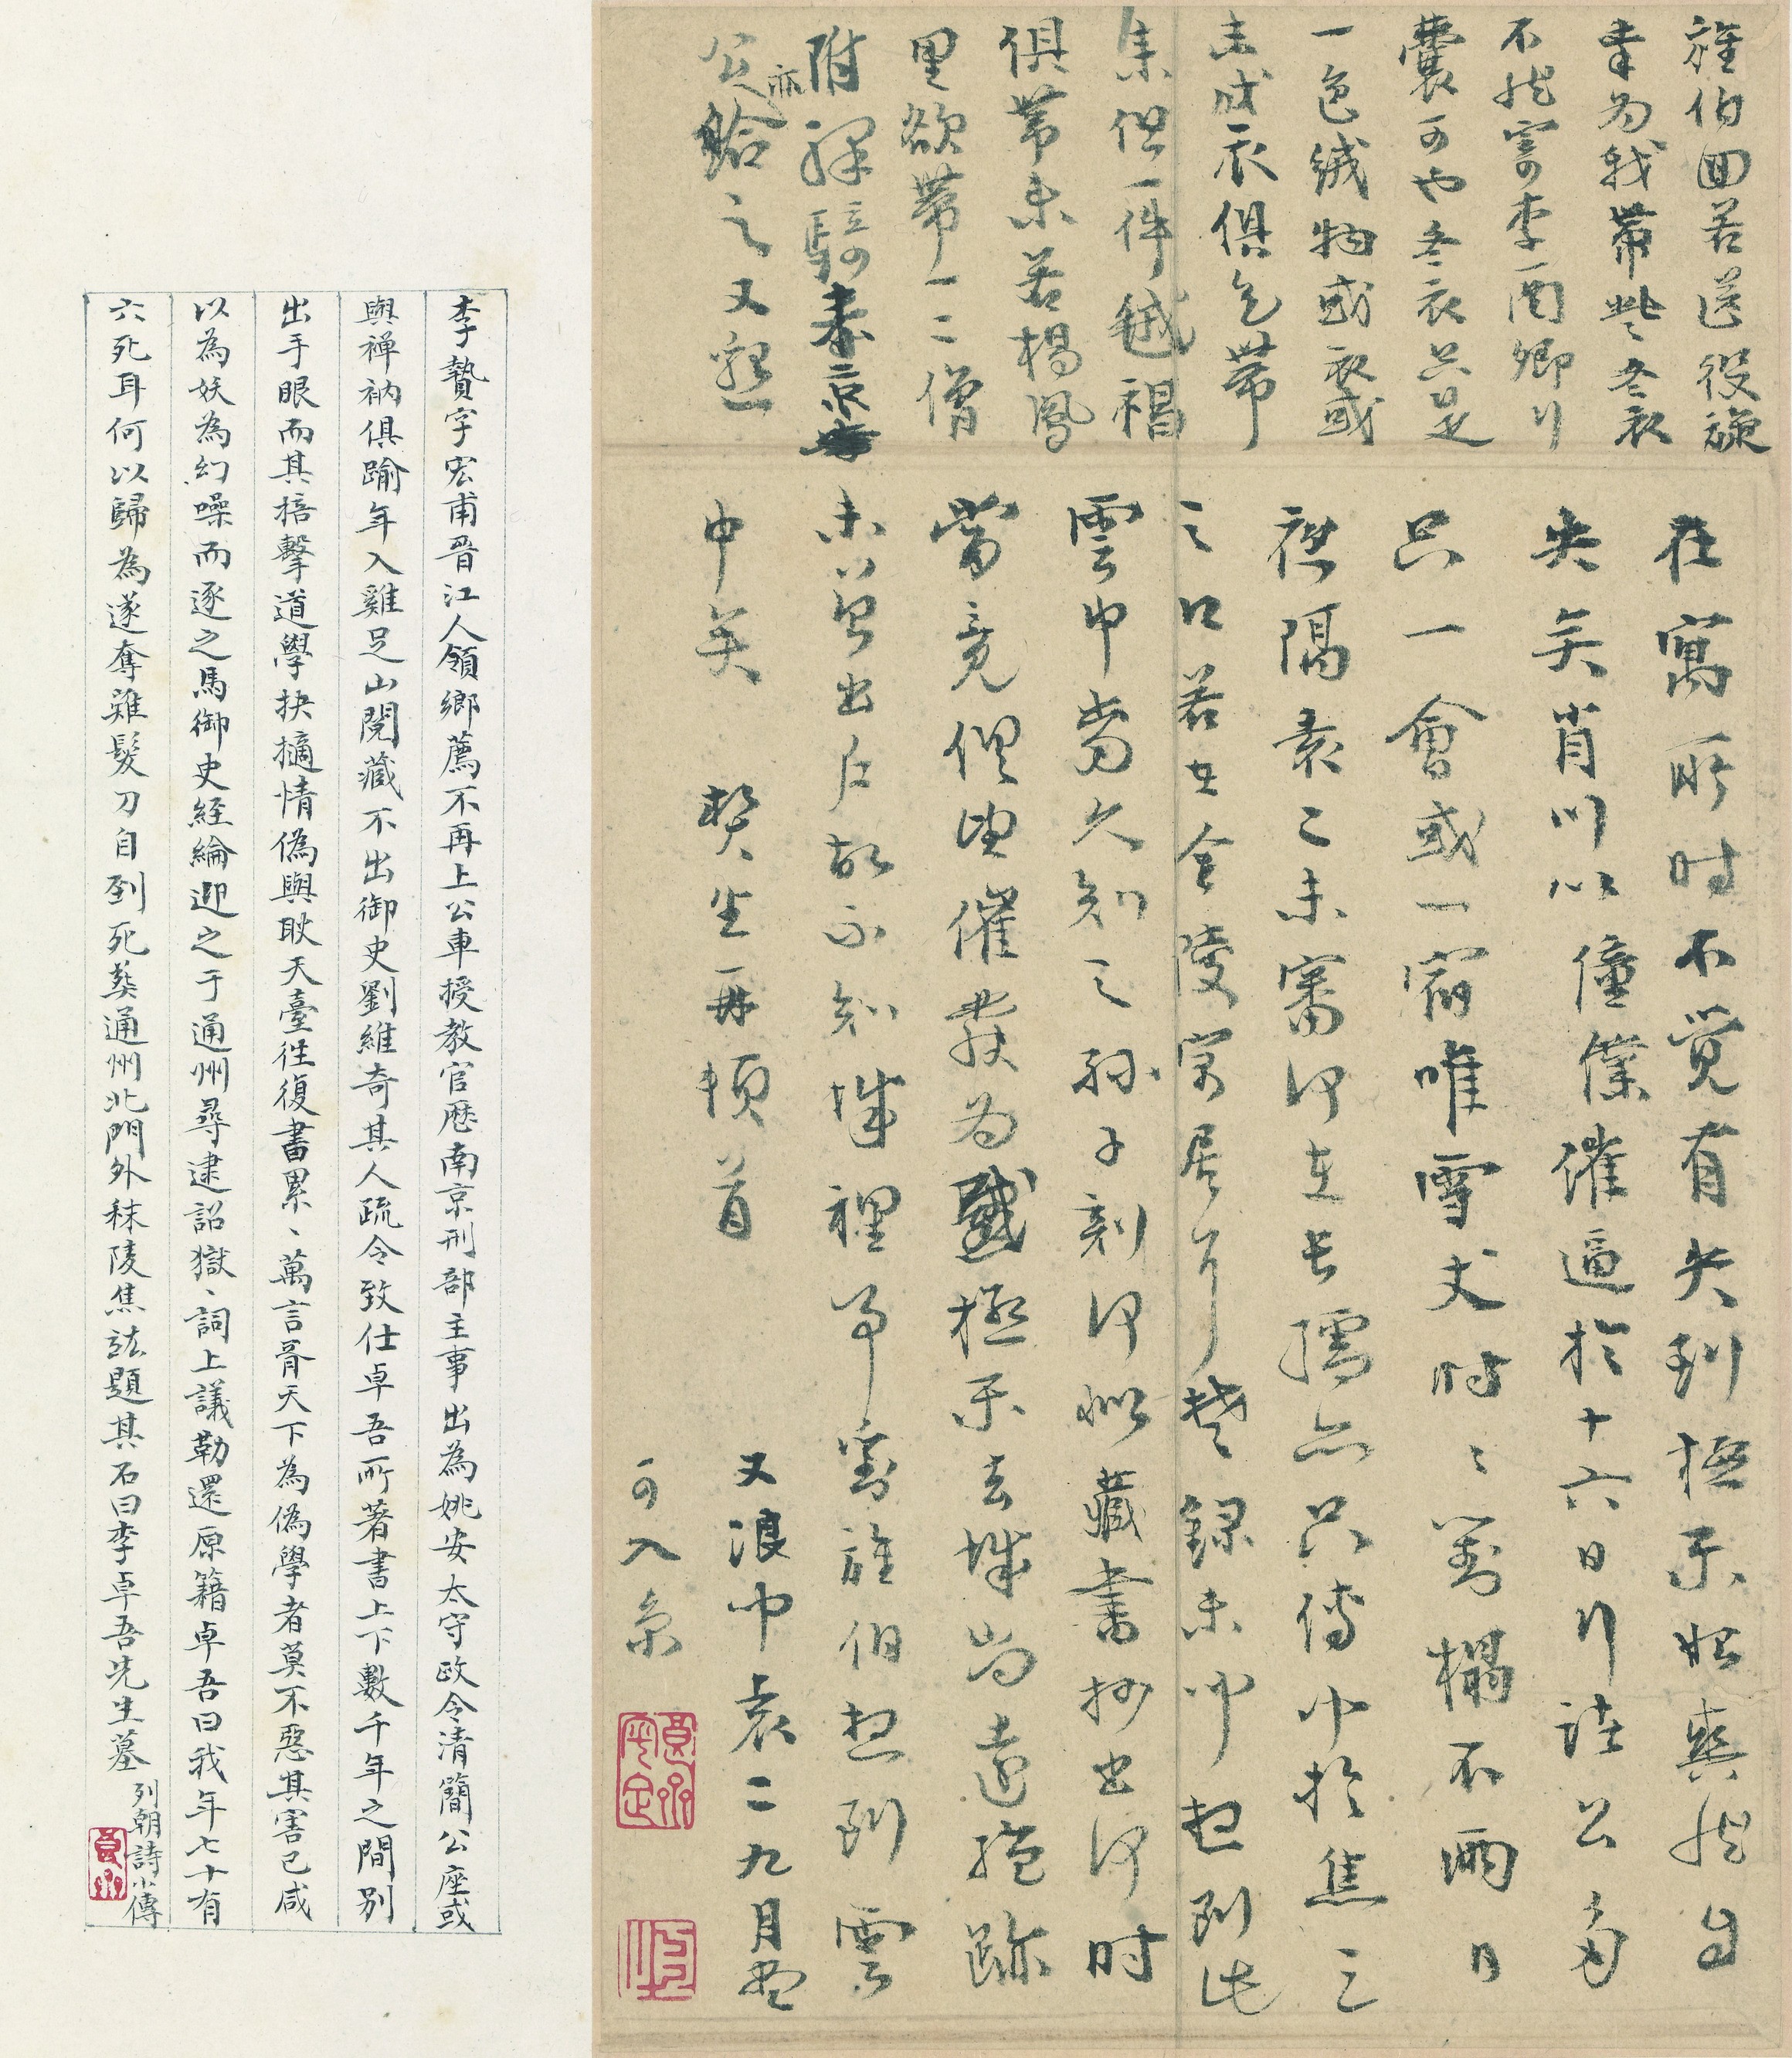 在寓所时不觉有失到極乐始爽然自
失矣肖川以僮僕催逼於十六日行諸公多
只一會或一宿唯雪丈时〻對榻不兩日
裡隔袁二未審何在長孺亦只傳聞於焦三
之口若在金陵家居耳楚録未聞想到此
雲中當久知之孫子刻何似藏書抄出何时
當竟但望催發为感極乐去城尚遠絕跡
未曾出戶故不知城裡事對誰伯想到雲
中矣 贄生再頓首
又浪中袁二九月盡
可入京
誰伯回若送役旋
幸为我帶些冬衣
不然寄李酉卿行
囊可也冬衣只是
一色絨物或衣或
未成衣俱乞帶
集但一件絨褐
俱帶未若楊鳳
里欲帶一二僧
附驛騎来京
公亦給之又懇
李贄字宏甫晋江人領鄉薦不再上公車授教官歷南京刑部主事出為姚安太守政令清簡公座或
與禅衲俱踰年入雞足山閱藏不出御史劉維奇其人疏令致仕卓吾所著書上下數千年之間別
出手眼而其掊擊道學抉擿情偽與耿天臺往復書累、萬言胥天下為偽學者莫不惡其害己咸
以為妖為幻噪而逐之馬御史経綸迎之于通州尋逮詔獄、詞上議勒還原籍卓吾曰我年七十有
六死耳何以歸為遂奪薙髮刀自刭死葬通州北門外秣陵焦竑題其石曰李卓吾先生墓
列朝詩小傳